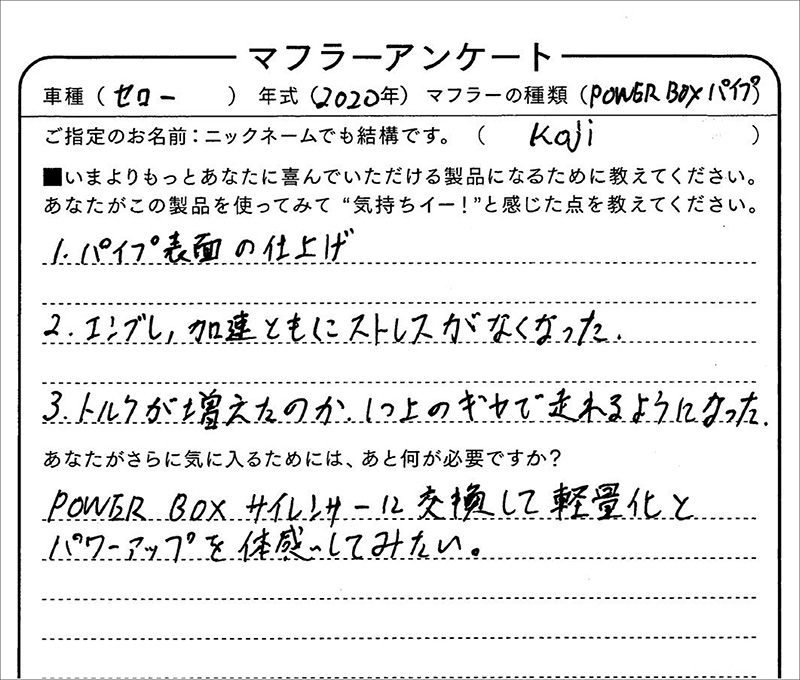 マフラーアンケート
車種（セロー　　）　年式（2020年）マフラーの種類（POWER BOX パイプ）
ご指定のお名前：ニックネームでも結構です。（　Koji　）
■いまよりもっとあなたに喜んでいただける製品になるために教えてください。
あなたがこの製品を使ってみて“気持ちイー！”と感じた点を教えてください。
1. パイプ表面の仕上げ
2. エンブレ, 加速ともにストレスがなくなった.
3. トルクが増えたのか. 1つ上のギヤで走れるようになった.
あなたがさらに気に入るためには、あと何が必要ですか？
POWER BOX サイレンサーに交換して軽量化と
パワーアップを体感してみたい。